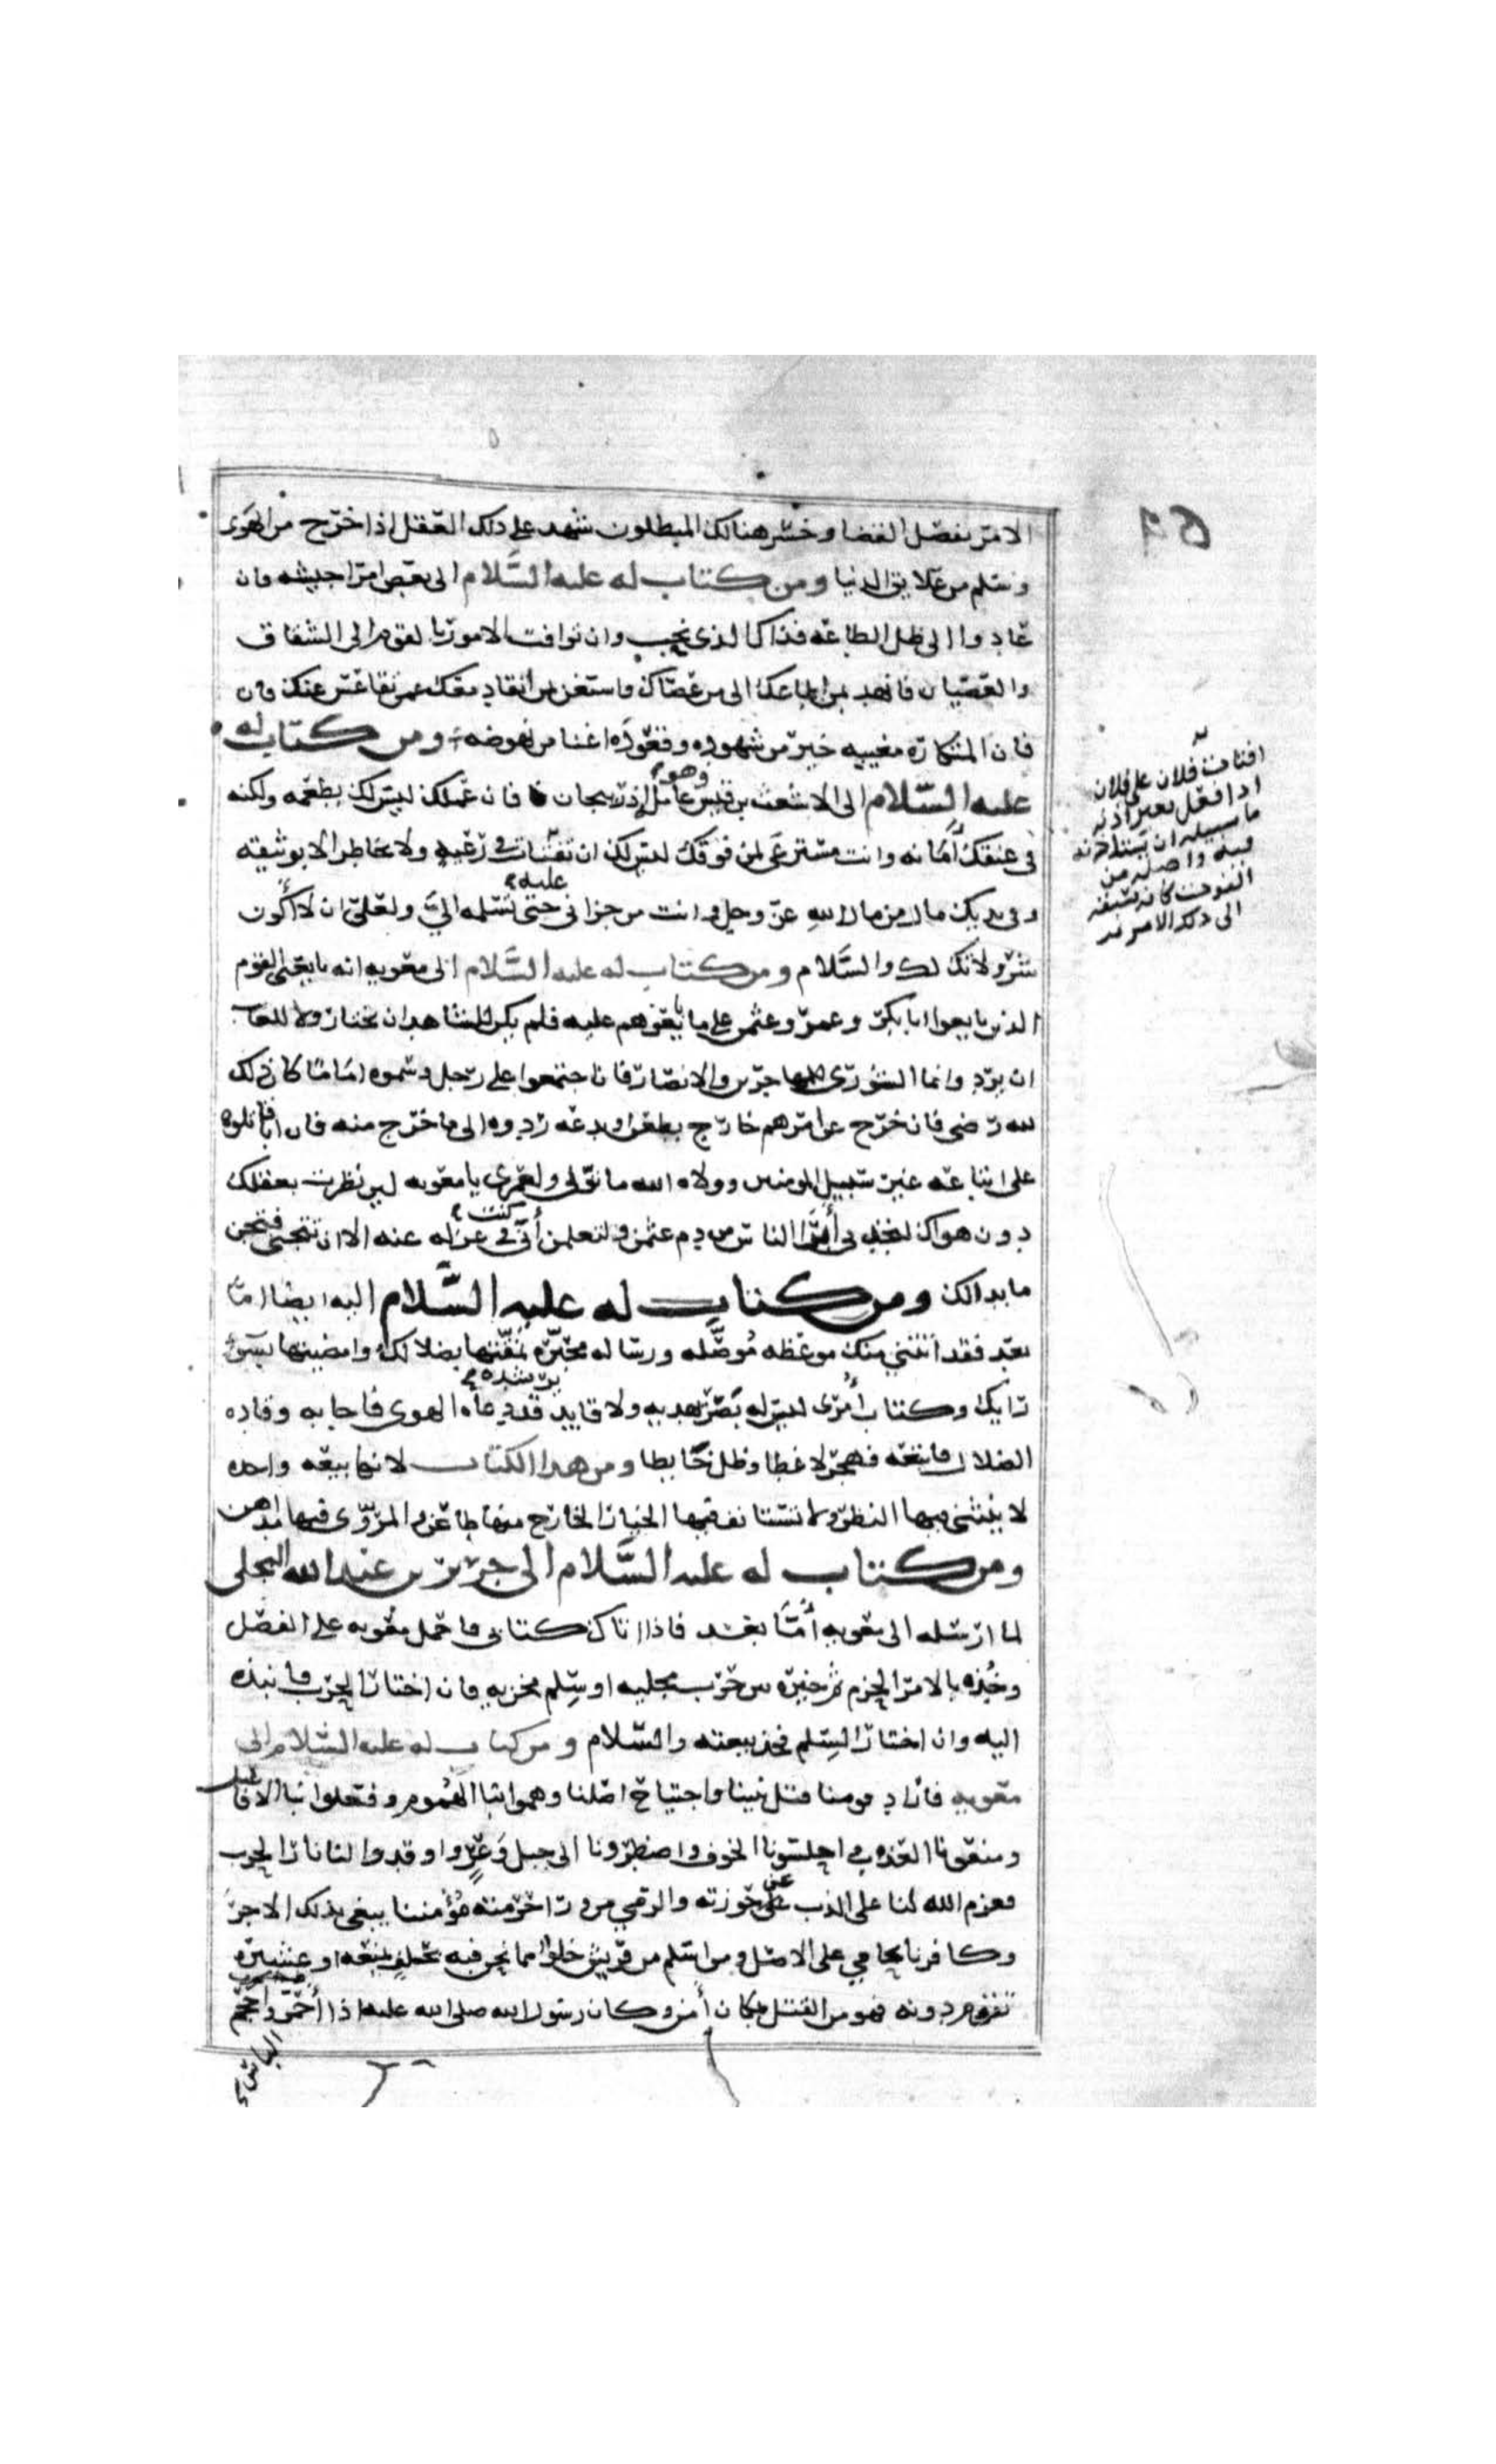 الامر بفصل القضا وخسر هنالك المبطلون شهد على ذلك العقل اذا خرج من الهوى
وسلم من علايق الدنيا ومن كتاب له عليه السَّلام الى بعض امرا جيشه فان
عادوا الى ظل الطاعه فذاك الذى نحب وان توافت الامور بالقوم الى الشقاق
والعصيان فانهد بمن اطاعك الى من عصاك واستغن بمن انقاد معك عمن تقاعس عنك فان
فان المتكاره مغيبه خير من شهوده وقعوده اغنا من نهوضه ومن كتاب له
عليه السَّلام الى الاشعث بن قيس وهو عامل اذربيجان فان عملك ليس لك بطعمه ولكنه
فى عنقك أمانه وانت مسترعى لمن فوقك ليس لك ان تفتات فى رعيه ولا تخاطر الا بوثيقه
وفى يديك مال من مال الله عزّ وجل وانت من خزانى عليه حتى تسلمه الىّ ولعلىّ ان لا أكون
شرّ ولاتك لك والسَّلام ومن كتاب له عليه السَّلام الى معويه انه بايعنى القوم
الذين بايعوا ابا بكر وعمر وعثمن على ما بايعوهم عليه فلم يكن للشاهد ان يختار ولا للغايب
ان يرد وانما الشورى للمهاجرين والانصار فان اجتمعوا على رجل وسموه امامًا كان ذلك
لله رضى فان خرج عن امرهم خارج بطعن او بدعه ردوه الى ما خرج منه فان ابا قاتلوه
على اتباعه غير سبيل المومنين وولاه الله ما تولى ولعمرى يا معويه لين نظرت بعقلك
دون هواك لتجدنى أبرَّا الناس من دم عثمن ولتعلمن أنّى كنت فى عزله عنه الا ان تتجنى فتجن
ما بدا لك ومن كتاب له عليه السَّلام اليه ايضا امّا
بعد فقد أتتني منك موعظه مُوصَّله ورساله محبّره نمّقتها بضلالك وامضيتها بسوء
رايك وكتاب أمرى ليس له بَصَر يهديه ولا قايد يرشده قد دعاه الهوى فاجابه وقاده
الضلال فاتبعه فهجر لاغطا وضل خَابطا ومن هذا الكتاب لانها بيعه واحده
لا يثنى فيها النظر ولا تستانف فيها الخيار الخارج منها طاعن والمروّى فيها مداهن
ومن كتاب له عليه السَّلام الى جرير بن عبد الله البجلى
لما ارسله الى معويه أمَّا بعد فاذا اتاك كتابى فاحمل معويه على الفصل
وخُذه بالامر الجزم ثم خيره بين حرب مجليه او سِلم مخزيه فان اختار الحرب فانبذ
اليه وان اختار السِلم فخذ بيعته والسَّلام ومن كتاب له عليه السَّلام الى
معويه فاراد قومنا قتل نبينا واجتياح اصلنا وهموا بنا الهُموم وفعلوا بنا الافاعيل
ومنعونا العذب واحلسونا الخوف واضطرونا الى جبل وَعْرٍ واوقدوا لنا نار الحرب
فعزم الله لنا على الذب عن حَوزته والرمي من ورا حرمته مُؤمننا يبغى بذلك الاجرَ
وكافرنا يحامي على الاصل ومن اسلم من قريش خلوٌ مما نحن فيه بحلفٍ يمنعه او عشيره
تقوم دونه فهو من القتل بمكان أمن وكان رسول الله صلى الله عليه اذا أحمَرَّ واحجم
الناس
افتات فلان على فلان
اذا فعل بغير اذنه
ما سبيله ان يستاذنه
فيه واصله من
الفوت كانه سبقه
الى ذلك الامر